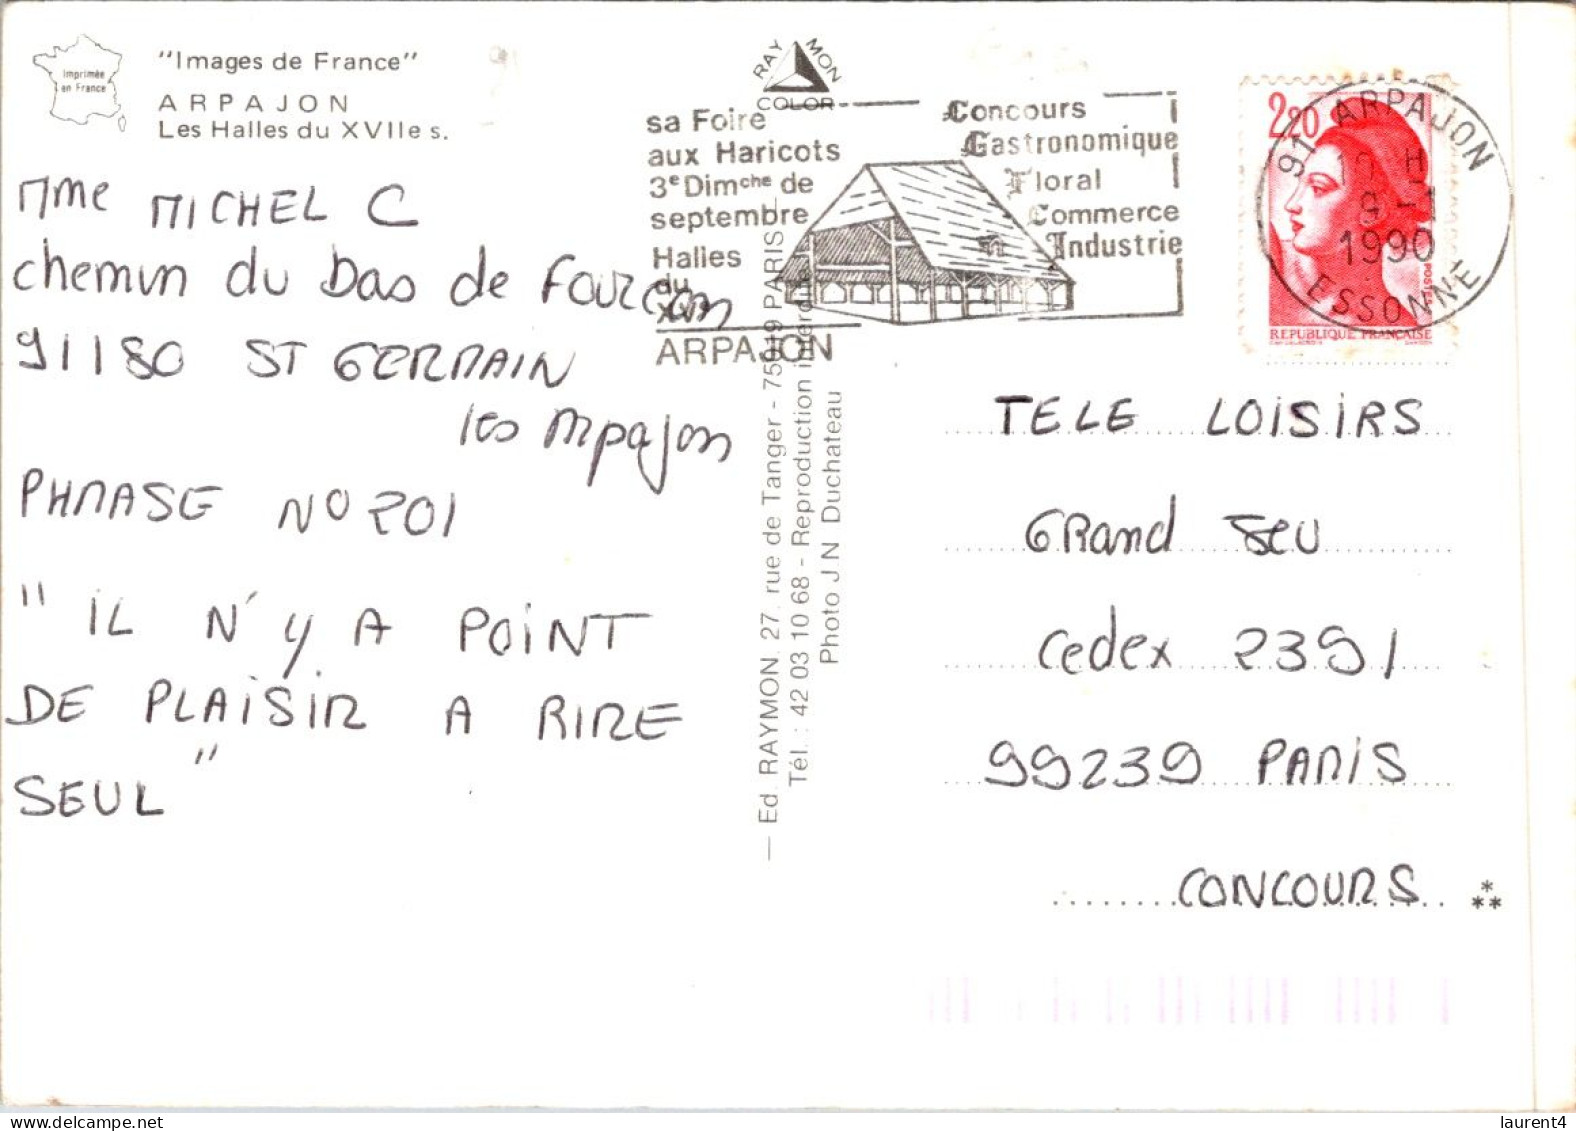 Imprimée
en France
"Images de France"
ARPAJON
Les Halles du XVIIe s.
Mme MICHEL C
chemin du bas de
91180 ST GERMAIN
les Arpajon
PHRASE N° 201
"IL N'Y A POINT
DE PLAISIR A RIRE
SEUL"
RAYMON
COLOR
sa Foire
aux Haricots
3e Dimche de
septembre
Halles
du
ARPAJON
Concours
Gastronomique
Floral
Commerce
Industrie
Ed. RAYMON. 27. rue de Tanger - 75019 PARIS
Tél. : 42 03 10 68 - Reproduction interdite
Photo J.N Duchateau
2,20
POSTES
REPUBLIQUE FRANÇAISE
91 ARPAJON
9 - 1
1990
ESSONNE
TELE LOISIRS
GRand JEU
Cedex 2391
99239 PARIS
CONCOURS
laurent4